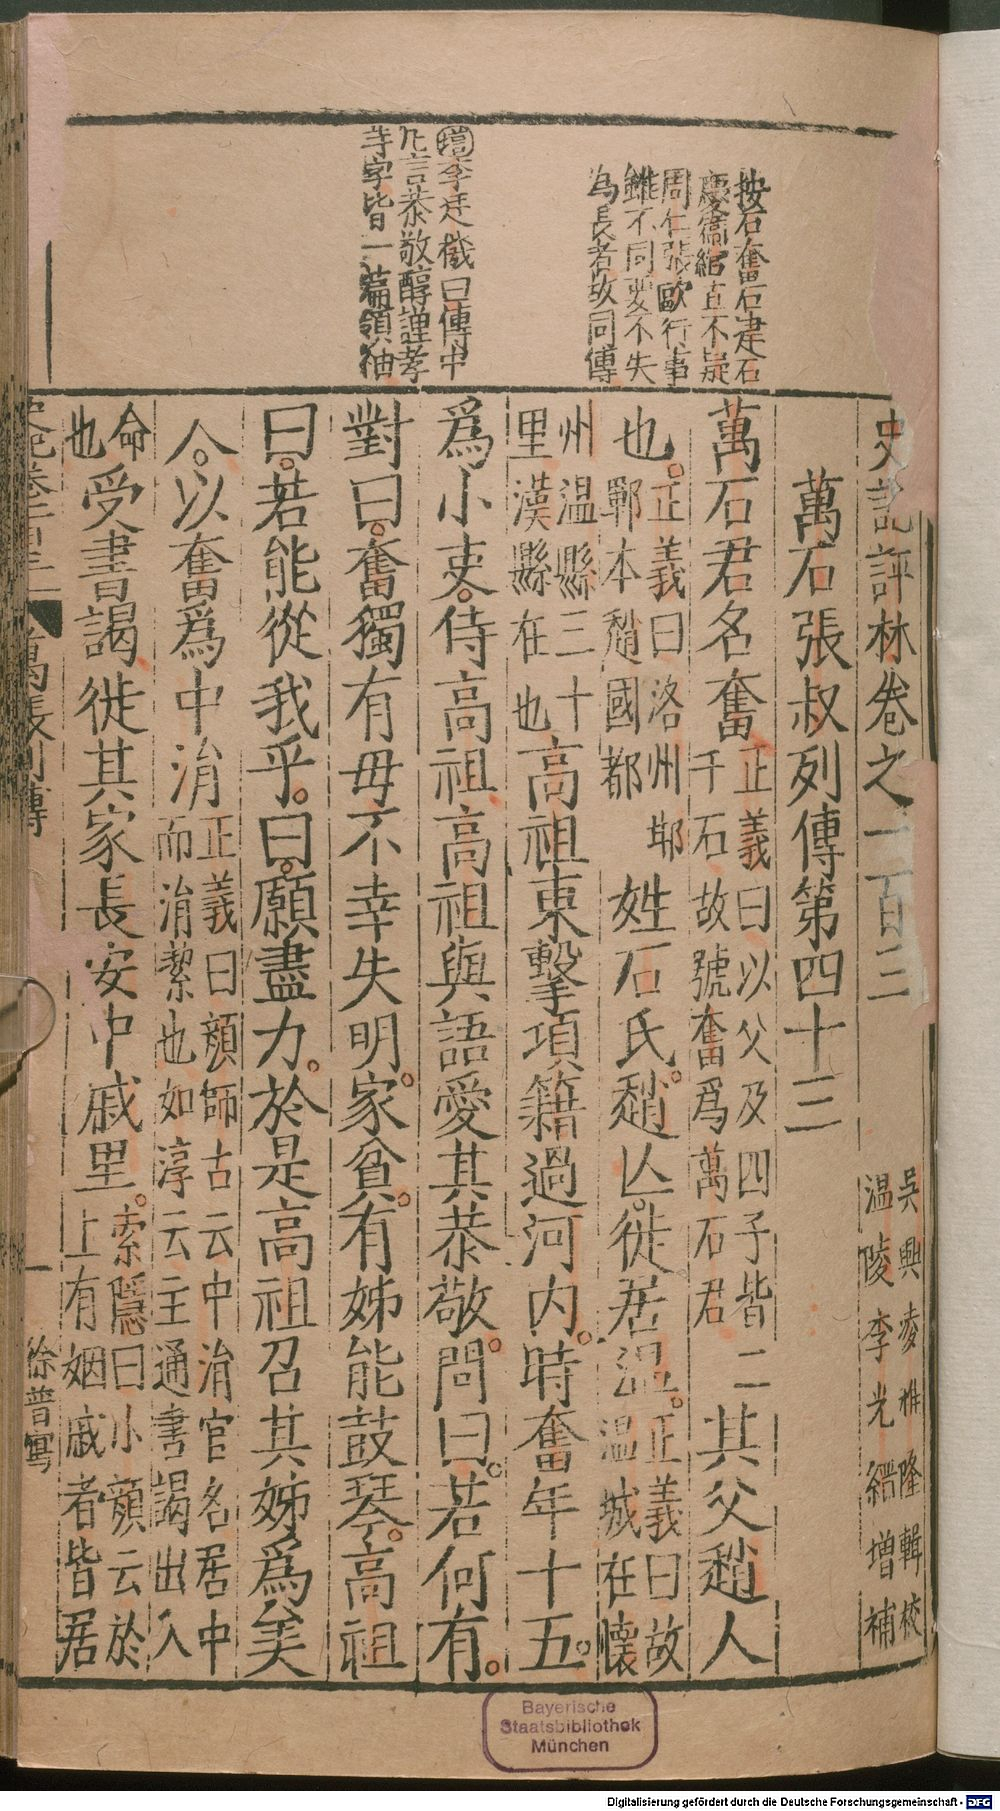 史記評林卷之一百三
吳興凌稚隆輯校
温陵李光縉增補
萬石張叔列傳第四十三
按石奮石建石
慶衛綰直不疑
周仁張歐行事
雖不同要不失
為長者故同傳
萬石君名奮正義曰以父及四子皆二千石故號奮爲萬石君其父趙人
也。正義曰洛州邯鄲本趙國都姓石氏。趙亾。徙居温。正義曰故温城在懷
州温縣三十里漢縣在也高祖東擊項籍過河内。時奮年十五。
增李廷機曰傳中
凢言恭敬醇謹孝
等字皆一篇領袖
爲小吏。侍高祖高祖與語愛其恭敬。問曰。若何有。
對曰。奮獨有母不幸失明。家貧。有姊能鼓琴。高祖
曰。若能從我乎。曰。願盡力。於是高祖召其姊爲美
人。以奮爲中涓正義曰顔師古云中涓官名居中而涓絜也如淳云主通書謁出入
命也受書謁徙其家長安中戚里。索隱曰小顔云於上有姻戚者皆居
史記卷一百三
萬張列傳
一
徐普寫
Bayerische
Staatsbibliothek
München
Digitalisierung gefördert durch die Deutsche Forschungsgemeinschaft - DFG